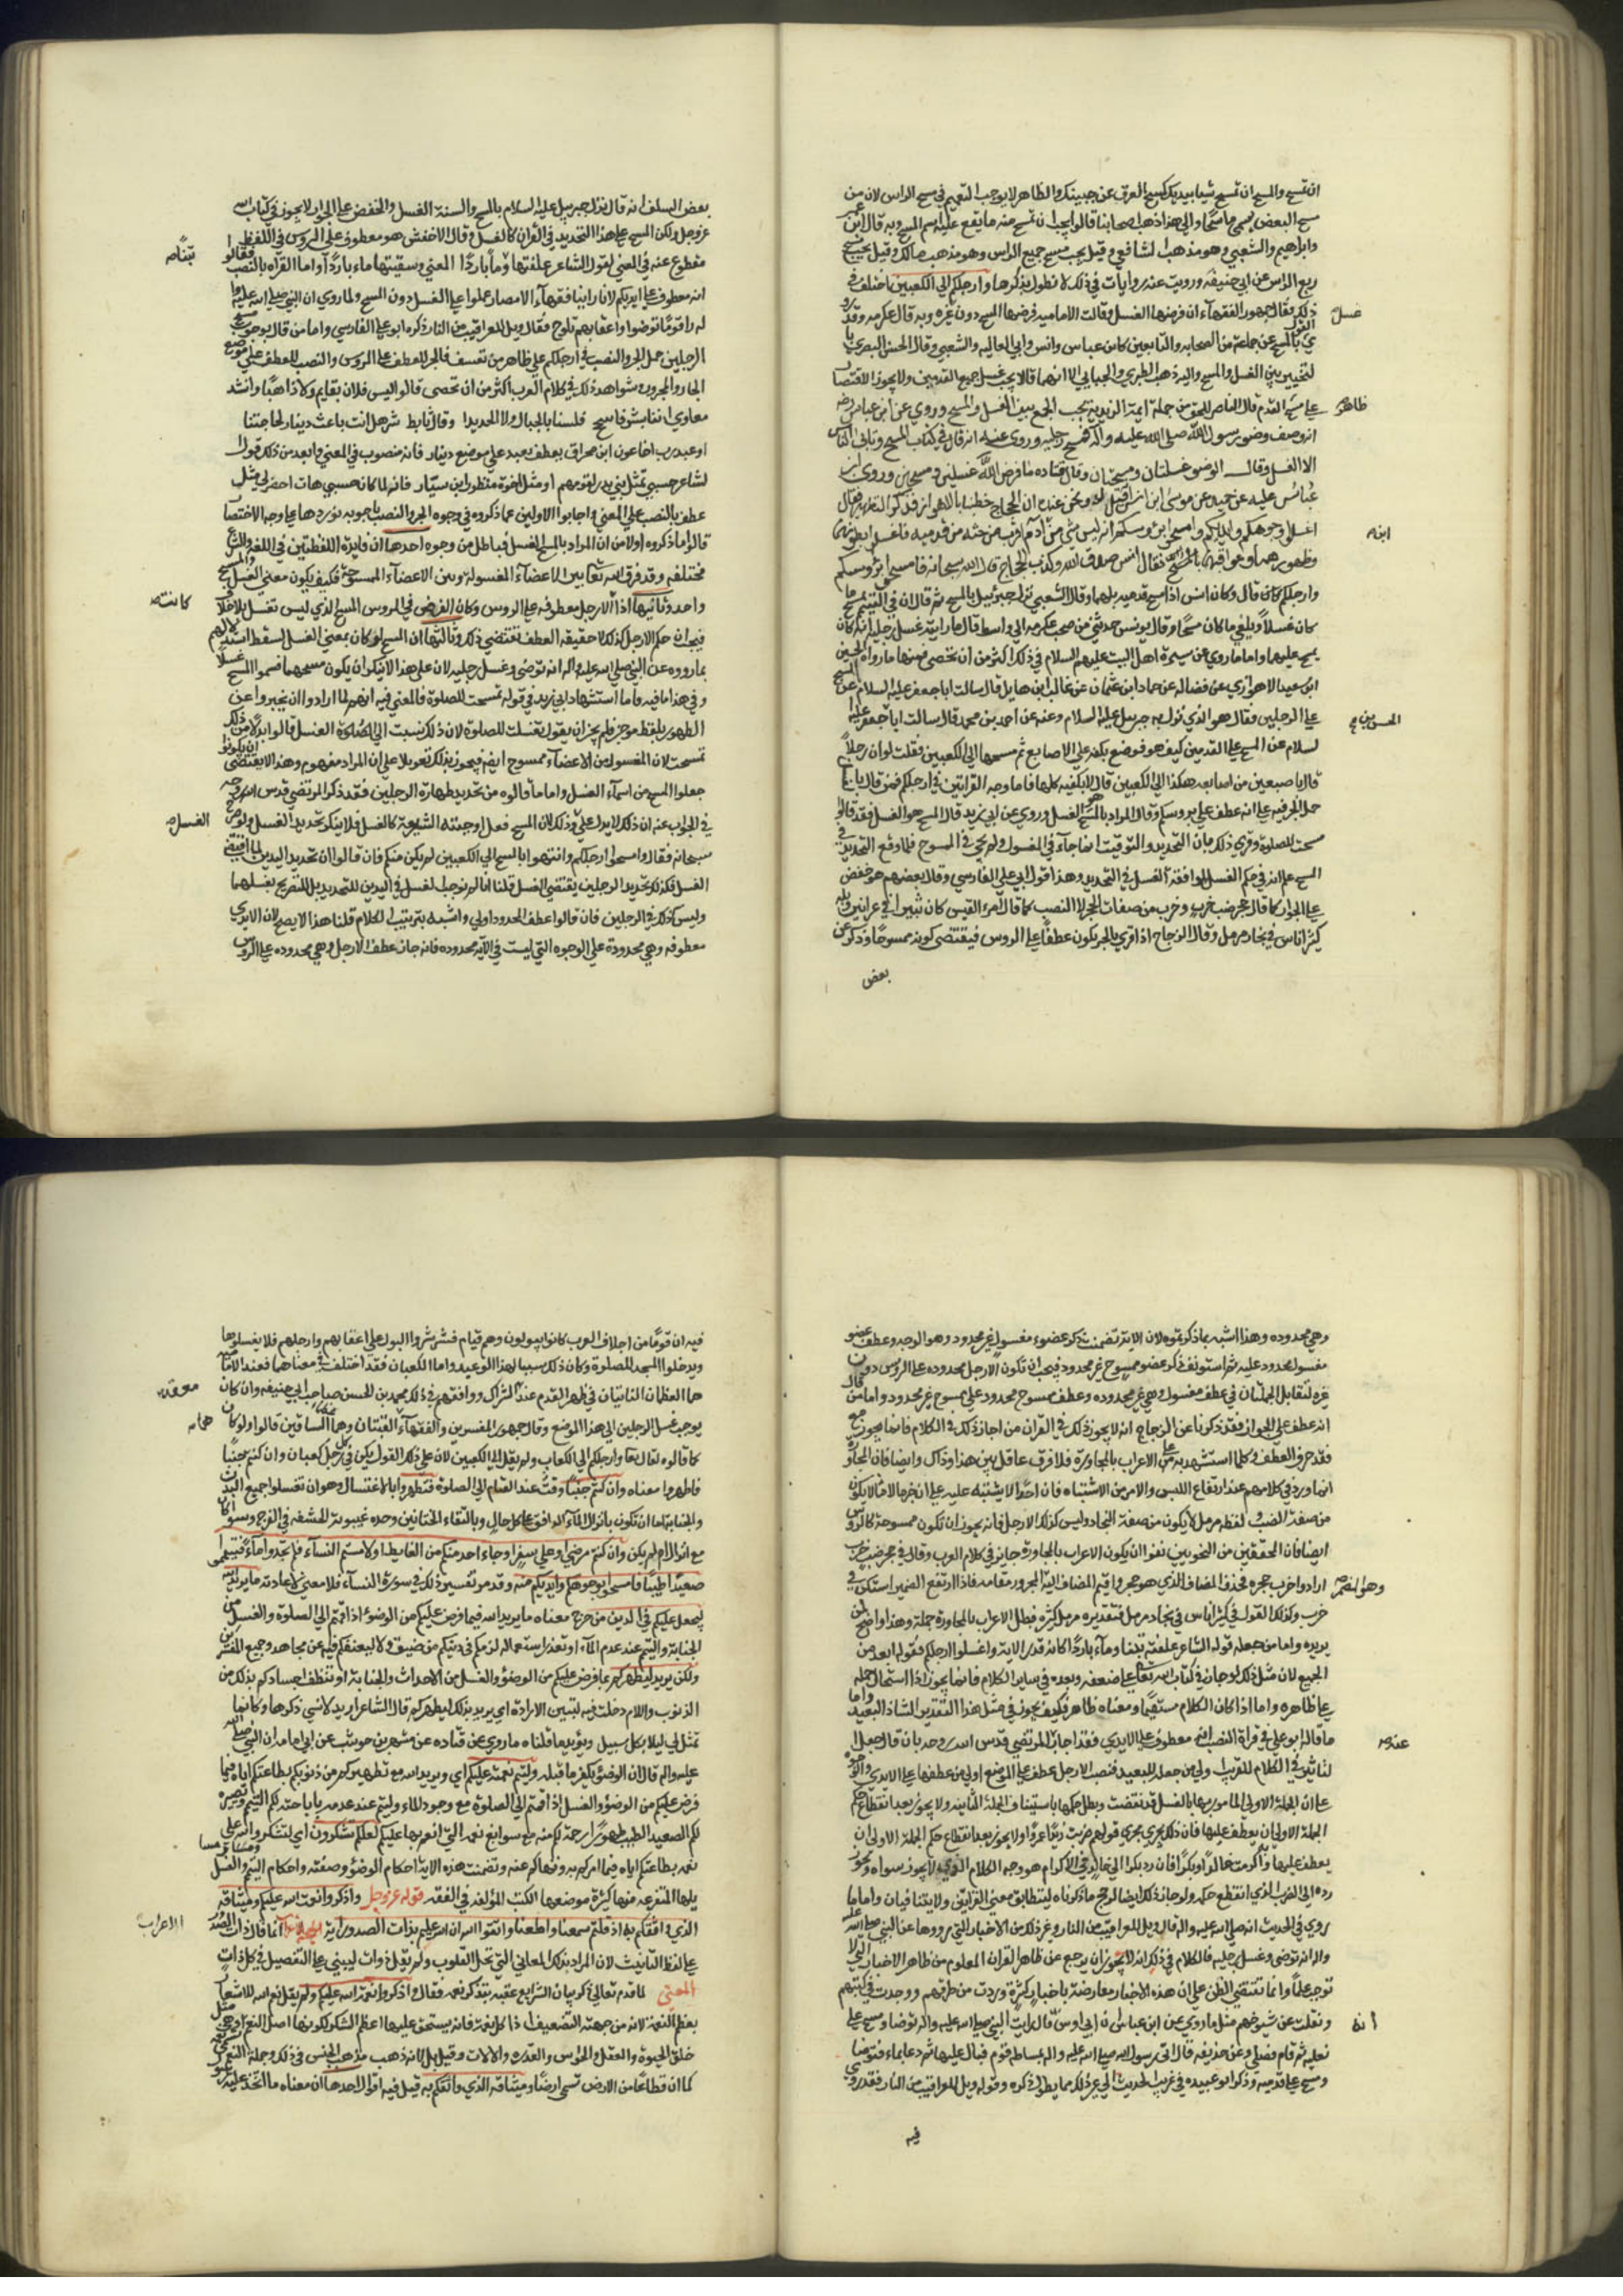 ان تمسح والمسح ان تمسح شيا بيديك كمسح العرق عن جبينك والظاهر لا يوجب التعميم في مسح الراس لان من
مسح البعض يسمى ماسحا والى هذا ذهب اصحابنا قالوا يجب ان تمسح منه ما يقع عليه اسم المسح وبه قال ابن عمر
وابراهيم والشعبي وهو مذهب الشافعي وقيل يجب مسح جميع الراس وهو مذهب مالك وقيل يجب مسح
ربع الراس عن ابي حنيفه ورويت عنه روايات في ذلك لا نطول بذكرها وارجلكم الى الكعبين اختلف في
ذلك فقال جمهور الفقهآء ان فرضهما الغسل وقالت الاماميه فرضهما المسح دون غيره وبه قال عكرمه وقد رو
ي القول بالمسح عن جماعة من الصحابه والتابعين كابن عباس وانس وابي العاليه والشعبي وقال الحسن البصري با
لتخيير بين الغسل والمسح واليه ذهب الطبري والجبايي الا انهما قالا يجب غسل جميع القدمين ولا يجوز الاقتصار
على مسح القدم قال الناصر للحق من جملة ايمة الزيدية يجب الجمع بين الغسل والمسح وروي عن ابن عباس رضه
انه وصف وضوء رسول الله صلى الله عليه وآله فمسح رجليه وروى عنه انه قال في كتاب الله المسح وتابى الناس
الا الغسل وقال الوضوء غسلتان ومسحتان وقال قتاده فرض الله غسلين ومسحين وروى ابن
عليه عن حميد عن موسى ابن انس انه قيل له ونحن عنده ان الحجاج خطبنا بالاهواز فذكر الطهر فقال
اغسلوا وجوهكم وايديكم وامسحوا برؤسكم انه ليس شي من آدم اقرب من خبثه من قدميه فاغسلوا بطونهما
وظهورهما وعراقيبهما فقال انس صدق الله وكذب الحجاج قال الله سبحانه فامسحوا برؤسكم
وارجلكم قال وكان انس اذا مسح قدميه بلهما وقال الشعبي نزل جبرئيل بالمسح ثم قال ان في التيمم يمسح ما
كان غسلا ويلغي ما كان مسحا وقال يونس حدثني من صحب عكرمه الى واسط قال ما رايته غسل رجليه انه كان
يمسح عليهما واما ما روي عن سيده اهل البيت عليهم السلام في ذلك اكثر من ان تحصى فمنها ما رواه الحسين
ابن سعيد الاهوازي عن فضاله عن حماد ابن عثمان عن غالب ابن هذيل قال سالت ابا جعفر عليه السلام عن المسح
على الرجلين فقال هو الذي نزل به جبريل عليه السلام وعنه عن احمد بن محمد قال سالت ابا جعفر عليه
السلام عن المسح على القدمين كيف هو فوضع بكفه على الاصابع ثم مسحها الى الكعبين فقلت لو ان رجلا
قال باصبعين من اصابعه هكذا الى الكعبين قال لا بكفيه كلها فاما وجه القرائتين في ارجلكم فمن قال
حمل الجر فيه على انه عطف على برؤسكم وقال المراد بالمسح هو الغسل وروي عن ابي زيد قال المسح هو الغسل فقد قالوا
تمسحت للصلوة وقوي ذلك بان التحديد والتوقيت انما جاء في المغسول ولم يجي في الممسوح فلما وقع التحديد في
المسح علم انه في حكم الغسل لموافقته الغسل في التحديد وهذا قول ابي علي الفارسي وقال بعضهم هو خفض
على الجوار كما قالوا جحر ضب خرب وخرب من صفات الجحر لا الضب كما قال امرء القيس كان ثبيرا في عرانين وبله
كبير اناس في بجاد مزمل وقال الزجاج اذا قرئ بالجر يكون عطفا على الروس فيقتضي كونه ممسوحا وذكر عن
بعض
غسل
ظاهر
ابنه
الحسن بن
بعض السلف انه قال نزل جبريل عليه السلام بالمسح والسنة الغسل والخفض على الجوار لا يجوز في كتاب الله
عز وجل ولكن المسح على هذا التحديد في القران كالغسل وقال الاخفش هو معطوف على الروس في اللفظ
مقطوع عنه في المعنى لقول الشاعر علفتها وماء باردا المعنى وسقيتها ماء باردا واما القرآه بالنصب فقالوا
انه معطوف على ايديكم لانا راينا فقهآء الامصار عملوا على الغسل دون المسح ولما روي ان النبي صلى الله عليه وا
له راى قوما توضوا واعقابهم تلوح فقال ويل للعراقيب من النار ذكره ابو علي الفارسي واما من قال بوجوب مسح
الرجلين حمل الجر والنصب في ارجلكم على ظاهره من تعسف فالجر للعطف على الروس والنصب للعطف على موضع
الجار والمجرور وشواهد ذلك في كلام العرب اكثر من ان تحصى قالوا ليس فلان بقايم ولا ذاهبا وانشد
معاوي اننا بشر فاسجح فلسنا بالجبال ولا الحديدا وقال تابط شرا هل انت باعث دينار لحاجتنا
او عبد رب اخا عون ابن مخراق يعطف بعبد على موضع دينار فانه منصوب في المعنى وابعد من ذلك قول ا
لشاعر جئني بمثل بني بدر لقومهم او مثل اخوة منظور ابن سيار فانه لما كان جئني هات احضر لي مثل
عطف بالنصب على المعنى واجابوا الاولين عما ذكروه في وجوه الجر والنصب باجوبه نوردها على وجه الاختصا
قالوا ما ذكروه اولا من ان المراد بالمسح الغسل فباطل من وجوه احدها ان فايدة اللفظتين في اللغه والشرع
مختلفه وقد فرق الله تعالى بين الاعضآء المغسوله وبين الاعضآء الممسوحة فكيف يكون معنى الغسل والمسح
واحد وثانيها اذا الارجل معطوفه على الروس وكان الفرض في الروس المسح الذي ليس بغسل بلا خلاف
فيجب ان حكم الارجل كذلك لا حقيقه العطف تقتضي ذلك وثالثها ان المسح لو كان بمعنى الغسل لسقط استدلالهم
بما رووه عن النبي صلى الله عليه وآله انه توضى وغسل رجليه لان على هذا لا ينكر ان يكون مسحهما فسموا المسح غسلا
وفي هذا ما فيه واما استشهاد ابي زيد في قوله تمسحت للصلوة فالمعنى فيه انهم لما ارادوا ان يخبروا عن
الطهور بلفظ موجز فلم يجز ان يقول تغسلت للصلوة لان ذلك نسبت الى الغسل قالوا بدلا من ذلك
تمسحت لان المغسول من الاعضآء ممسوح ايضا فتجوز بذلك تعويلا على ان المراد مفهوم وهذا لا يقتضي ان يكونوا
جعلوا المسح من اسمآء الغسل واما ما قالوه من تحديد طهارة الرجلين فقد ذكر المرتضى قدس الله روحه
في الجواب عنه ان ذلك لا يدل على وذلك لان المسح فعل اوجبته الشريعة كالغسل فلا ينكر تحديد الغسل ولو صرح
سبحانه فقال وامسحوا ارجلكم وانتهوا بالمسح الى الكعبين لم يكن منكرا فان قالوا ان تحديد اليدين لما اقتضى
الغسل فكذلك تحديد الرجلين يقتضي الغسل قلنا انا لم نوجب الغسل في اليدين للتحديد بل للتصريح بغسلهما
وليس كذلك في الرجلين فان قالوا عطف المحدود اولى واشبه بترتيب الكلام قلنا هذا لا يصح لان الايدي
معطوفه وهي محدودة على الوجوه التي ليست في الآية محدوده فانه جاز عطف الارجل وهي محدوده على الروس
تبنا
كانت
الغسل
وهي محدوده وهذا اشبه بما ذكرتموه لان الايه تضمنت ذكر عضو مغسول غير محدود وهو الوجه وعطف عضو
مغسول محدود عليه ثم استونف ذكر عضو ممسوح غير محدود فيجب ان تكون الارجل محدوده على الروس دون
غيره لتقابل الجملتان في عطف مغسول وهي غير محدوده وعطف ممسوح محدود على ممسوح غير محدود واما من قال
انه عطف على الجوار فقد ذكرنا عن الزجاج انه لا يجوز ذلك في القران من اجاز ذلك في الكلام فانما يجوز مع
فقد حرف العطف وكلما استشهد به على الاعراب بالمجاورة فلا فرق عاقل بين هذا وذاك وايضا فان المجاورة
انما ورد في كلامهم عند ارتفاع اللبس والامر من الاشتباه فان احدا لا يشتبه عليه على ان خربا لا يكون
من صفة الضب ولفظ مزمل لا يكون من صفة البجاد وليس كذلك الارجل فانه يجوز ان تكون ممسوحة كالروس
ايضا فان المحققين من النحويين نفوا ان يكون الاعراب بالمجاورة جايز في كلام العرب وقال في جحر ضب خرب
ارادوا خرب جحره فحذف المضاف الذي هو جحر واقيم المضاف اليه المجرور مقامه فاذا ارتفع الضمير استكن في
خرب وكذلك القول في كبير اناس في بجاد مزمل فتقديره مزمل كبيره فبطل الاعراب بالمجاورة جملة وهذا واضح لمن
يريده واما من جعله قوله الشاعر علفته تبنا وماء باردا كانه قدر الايه واغسلوا ارجلكم فقوله ابعد من
الجميع لان مثل ذلك لو جاز في كتاب الله تعالى على ضعفه وبعده في ساير الكلام فانما يجوز اذا استحال حمله
على ظاهره واما اذا كان الكلام مستقيما ومعناه ظاهر فكيف يجوز في مثل هذا التقدير الشاذ البعيد واما
ما قاله ابو علي في قراة النصب انه معطوف على الايدي فقد اجاب المرتضى قدس الله روحه بان قال جعل ا
لتاثير في الكلام للقريب اولى من جعله للبعيد فنصب الارجل عطف على الموضع اولى من عطفها على الايدي والوجوه
على ان الجملة الاولى المامور بها بالغسل قد نقضت وبطل حكمها باستيناف الجملة الثانيه ولا يجوز بعد انقطاع حكم
الجملة الاولى ان يعطف عليها فان ذلك يجري مجرى قولهم ضربت زيدا وعمرا ولا يجوز بعد انقطاع حكم الجملة الاولى ان
يعطف عليها واكرمت خالدا وبكرا فان رد بكر الى خالد في الاكرام هو وجه الكلام الذي لا يجوز سواه ويجوز
رده الى الضرب الذي انقطع حكمه ولو جاز ذلك ايضا لرجح ما ذكرناه ليتطابق معنى القرايتين ولا يتنافيان واما ما
روي في الحديث انه صلى الله عليه وآله قال ويل للعراقيب من النار وغير ذلك من الاخبار التي رووها عن النبي صلى الله عليه
وآله انه توضى وغسل رجليه فالكلام في ذلك انه لا يجوز ان يرجع عن ظاهر القران المعلوم من ظاهر الاخبار التي لا
توجب علما وانما تقتضي الظن على ان هذه الاخبار معارضة باخبار كثيرة وردت من طرقهم ووجدت في كتبهم
ونقلت عن شيوخهم مثل ما روي عن اوس ابن ابي اوس قال رايت النبي صلى الله عليه وآله توضا ومسح على
نعليه ثم قام فصلى وعن حذيفه قال اتى رسول الله صلى الله عليه وآله سباطه قوم فبال عليها ثم دعا بماء فتوضا
ومسح على قدميه وذكره ابو عبيده في غريب الحديث الى غير ذلك مما يطول ذكره وقوله ويل للعراقيب من النار فقد روي
فيه
وهو الضمير
عنه
انه
فيه ان قوما من اجلاف العرب كانوا يبولون وهم قيام فتشرشر البول على اعقابهم وارجلهم فلا يغسلوها
ويدخلوا المسجد للصلوة وكان ذلك سببا لهذا الوعيد واما الكعبان فقد اختلف في معناهما فعند الاماميه
هما العظمان النابتان في ظهر القدم عند الشراك ووافقهم في ذلك محمد بن الحسن صاحب ابي حنيفه وان كان
يوجب غسل الرجلين الى هذا الموضع وقال جمهور المفسرين والفقهآء الكعبتان وهما الساقين قالوا ولو كان
كما قالوه لقال تعالى وارجلكم الى الكعاب ولم يقل الى الكعبين لان على ذلك القول يكون في كل رجل كعبان وان كنتم جنبا
فاطهروا معناه وان كنتم جنبا وقت عند القيام الى الصلوة فتطهروا بالاغتسال وهو ان تغسلوا جميع البدن
والجنابة اما ان تكون بانزال المآء الدافق على كل حال وبالتقاء الختانين وحده غيبوبة الحشفه في الفرج وسوآ كان
مع انزال ام لم يكن وان كنتم مرضى او على سفر او جاء احد منكم من الغايط او لامستم النسآء فلم تجدوا مآء فتيمموا
صعيدا طيبا فامسحوا بوجوهكم وايديكم منه وقد مر تفسير ذلك في سورة النسآء فلا معنى لاعادته ما يريد الله
ليجعل عليكم في الدين من حرج معناه ما يريد الله فيما فرض عليكم من الوضوء اذا قمتم الى الصلوة والغسل من
الجنابة والتيمم عند عدم المآء او تعذر استعماله لزمكم في دينكم من ضيق ولا ليعنفكم فيه عن مجاهد وجميع المفسرين
ولكن يريد ليطهركم بما فرض عليكم من الوضوء والغسل من الاحداث والجنابة او تنظف اجسادكم بذلك من
الذنوب واللام دخلت فيه لتبيين الارادة اي يريد بذلك ليطهركم قال الشاعر اريد لانسى ذكرها وكانما
تمثل لي ليلا بكل سبيل ويؤيد ما قلناه ما روي عن قتاده عن شهر بن حوشب عن ابي امامه ان النبي صلى الله
عليه وآله قال ان الوضوء يكفر ما قبله وليتم نعمته عليكم اي ويريد الله مع تطهيركم من ذنوبكم بطاعتكم اياه فيما
فرض عليكم من الوضوء والغسل اذا قمتم الى الصلوة مع وجود الماء وليتم عند عدمه باباحته لكم التيمم وتصييره
لكم الصعيد الطيب طهورا رحمة لكم منه مع سوابغ نعمه التي انعم بها عليكم لعلكم تشكرون اي لتشكروا الله على
نعمه بطاعتكم اياه فيما امركم به ونهاكم عنه وتضمنت هذه الاية احكام الوضوء وصفته واحكام التيمم والغسل
يليها المتفرعه منها كثيرة موضعها الكتب المؤلفه في الفقه قوله عز وجل واذكروا نعمت الله عليكم وميثاقه
الذي واثقكم به اذ قلتم سمعنا واطعنا واتقوا الله ان الله عليم بذات الصدور اية انما قال ذات الصدور
على لفظ التانيث لان المراد بذلك المعاني التي تحل القلوب ولم يقل ذوات ليبني على التفصيل في كل ذات
المعنى لما قدم تعالى ذكر بيان الشرايع عقبه بتذكر نعمه فقال واذكروا نعمة الله عليكم ولم يقل نعم الله للاشعار
بعظم النعمة لانه من جهة التضعيف اذا كل نعمة فانه يستحق عليها اعظم الشكر لكونها اصل النعم مثل
خلق الحيوة والعقل والحواس والقدره والالات وقيل بل لانه ذهب مذهب الجنس في ذلك وجملة النعم
كما ان قطاعا من الارض تسمى ارضا وميثاقه الذي واثقكم به قيل فيه اقوال احدها ان معناه ما اخذ عليكم
معقد
هما
الاعراب